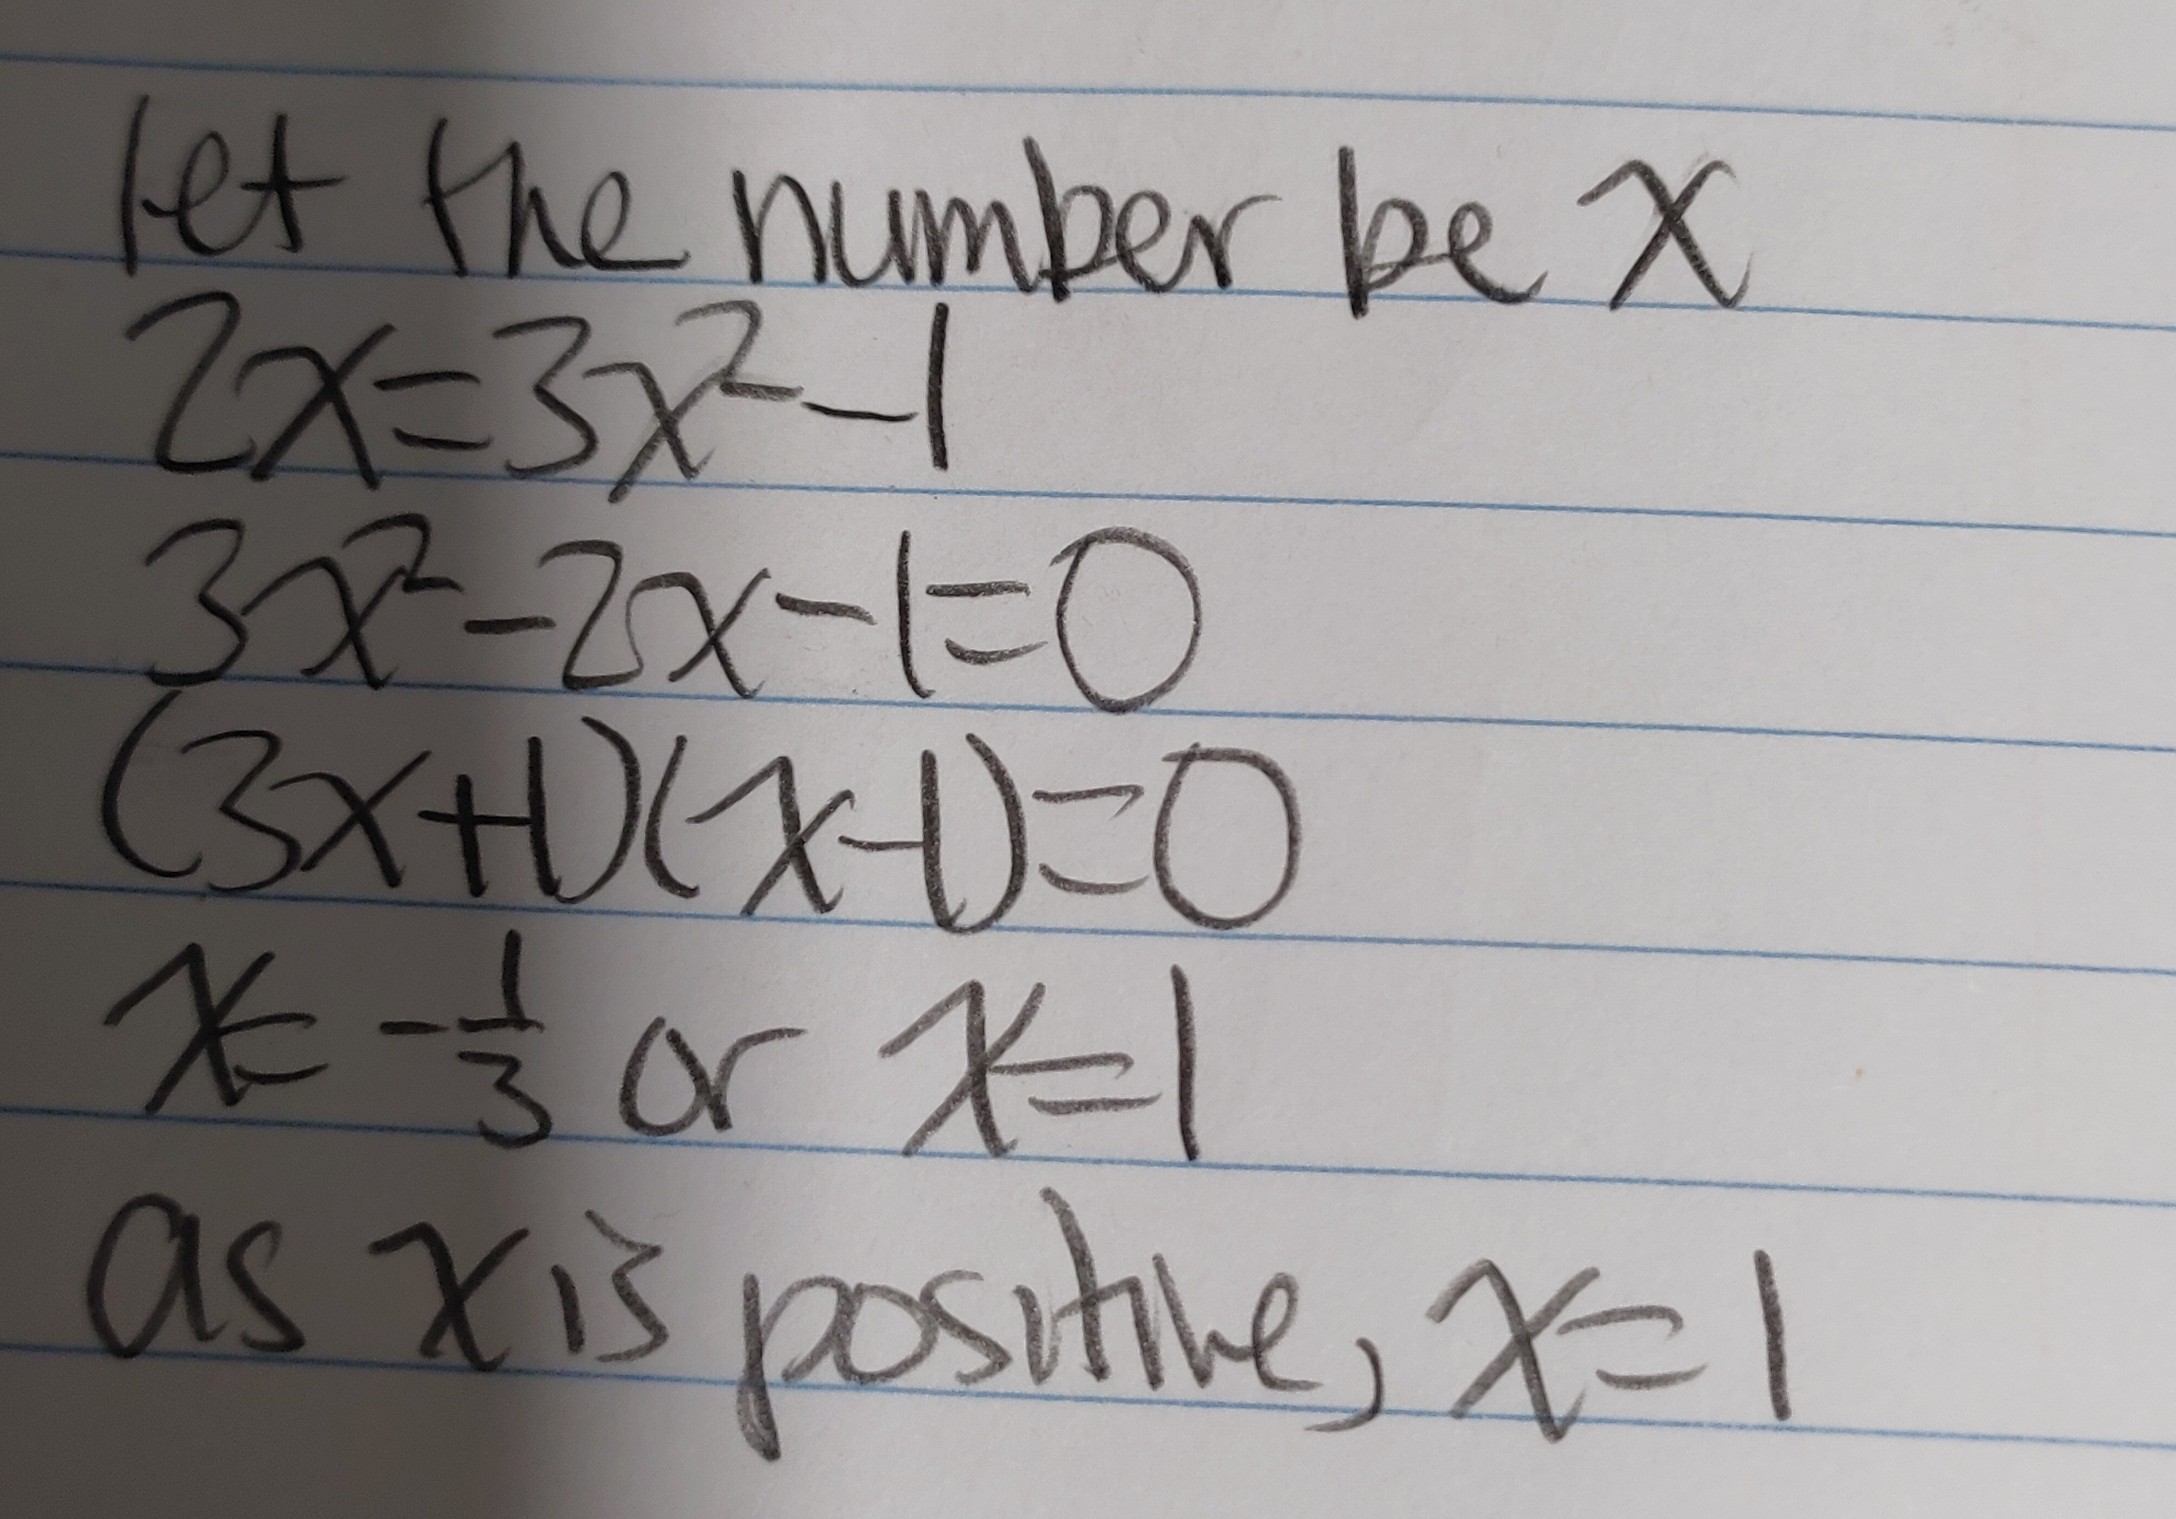 let the number be x
2x=3x²-1
3x²-2x-1=0
(3x+1)(x-1)=0
x= -1/3 or x=1
as x is positive, x=1